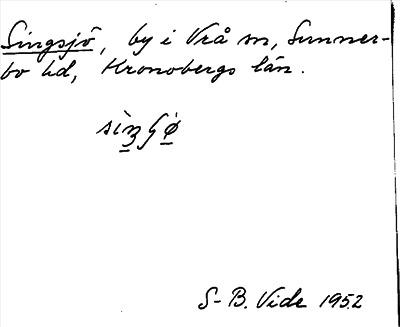 Singsjö, by i Vrå sn, Sunner-
bo hd, Kronobergs län.
S-B. Vide 1952